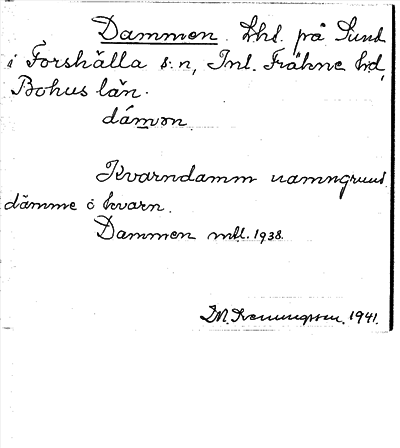 Dammen. Lhl. på Sund
i Forshälla s:n, Inl. Fräkne hd,
Bohus län.
dámǝn
Kvarndamm namngrund
dämme o kvarn.
Dammen mtl. 1938.
1941.